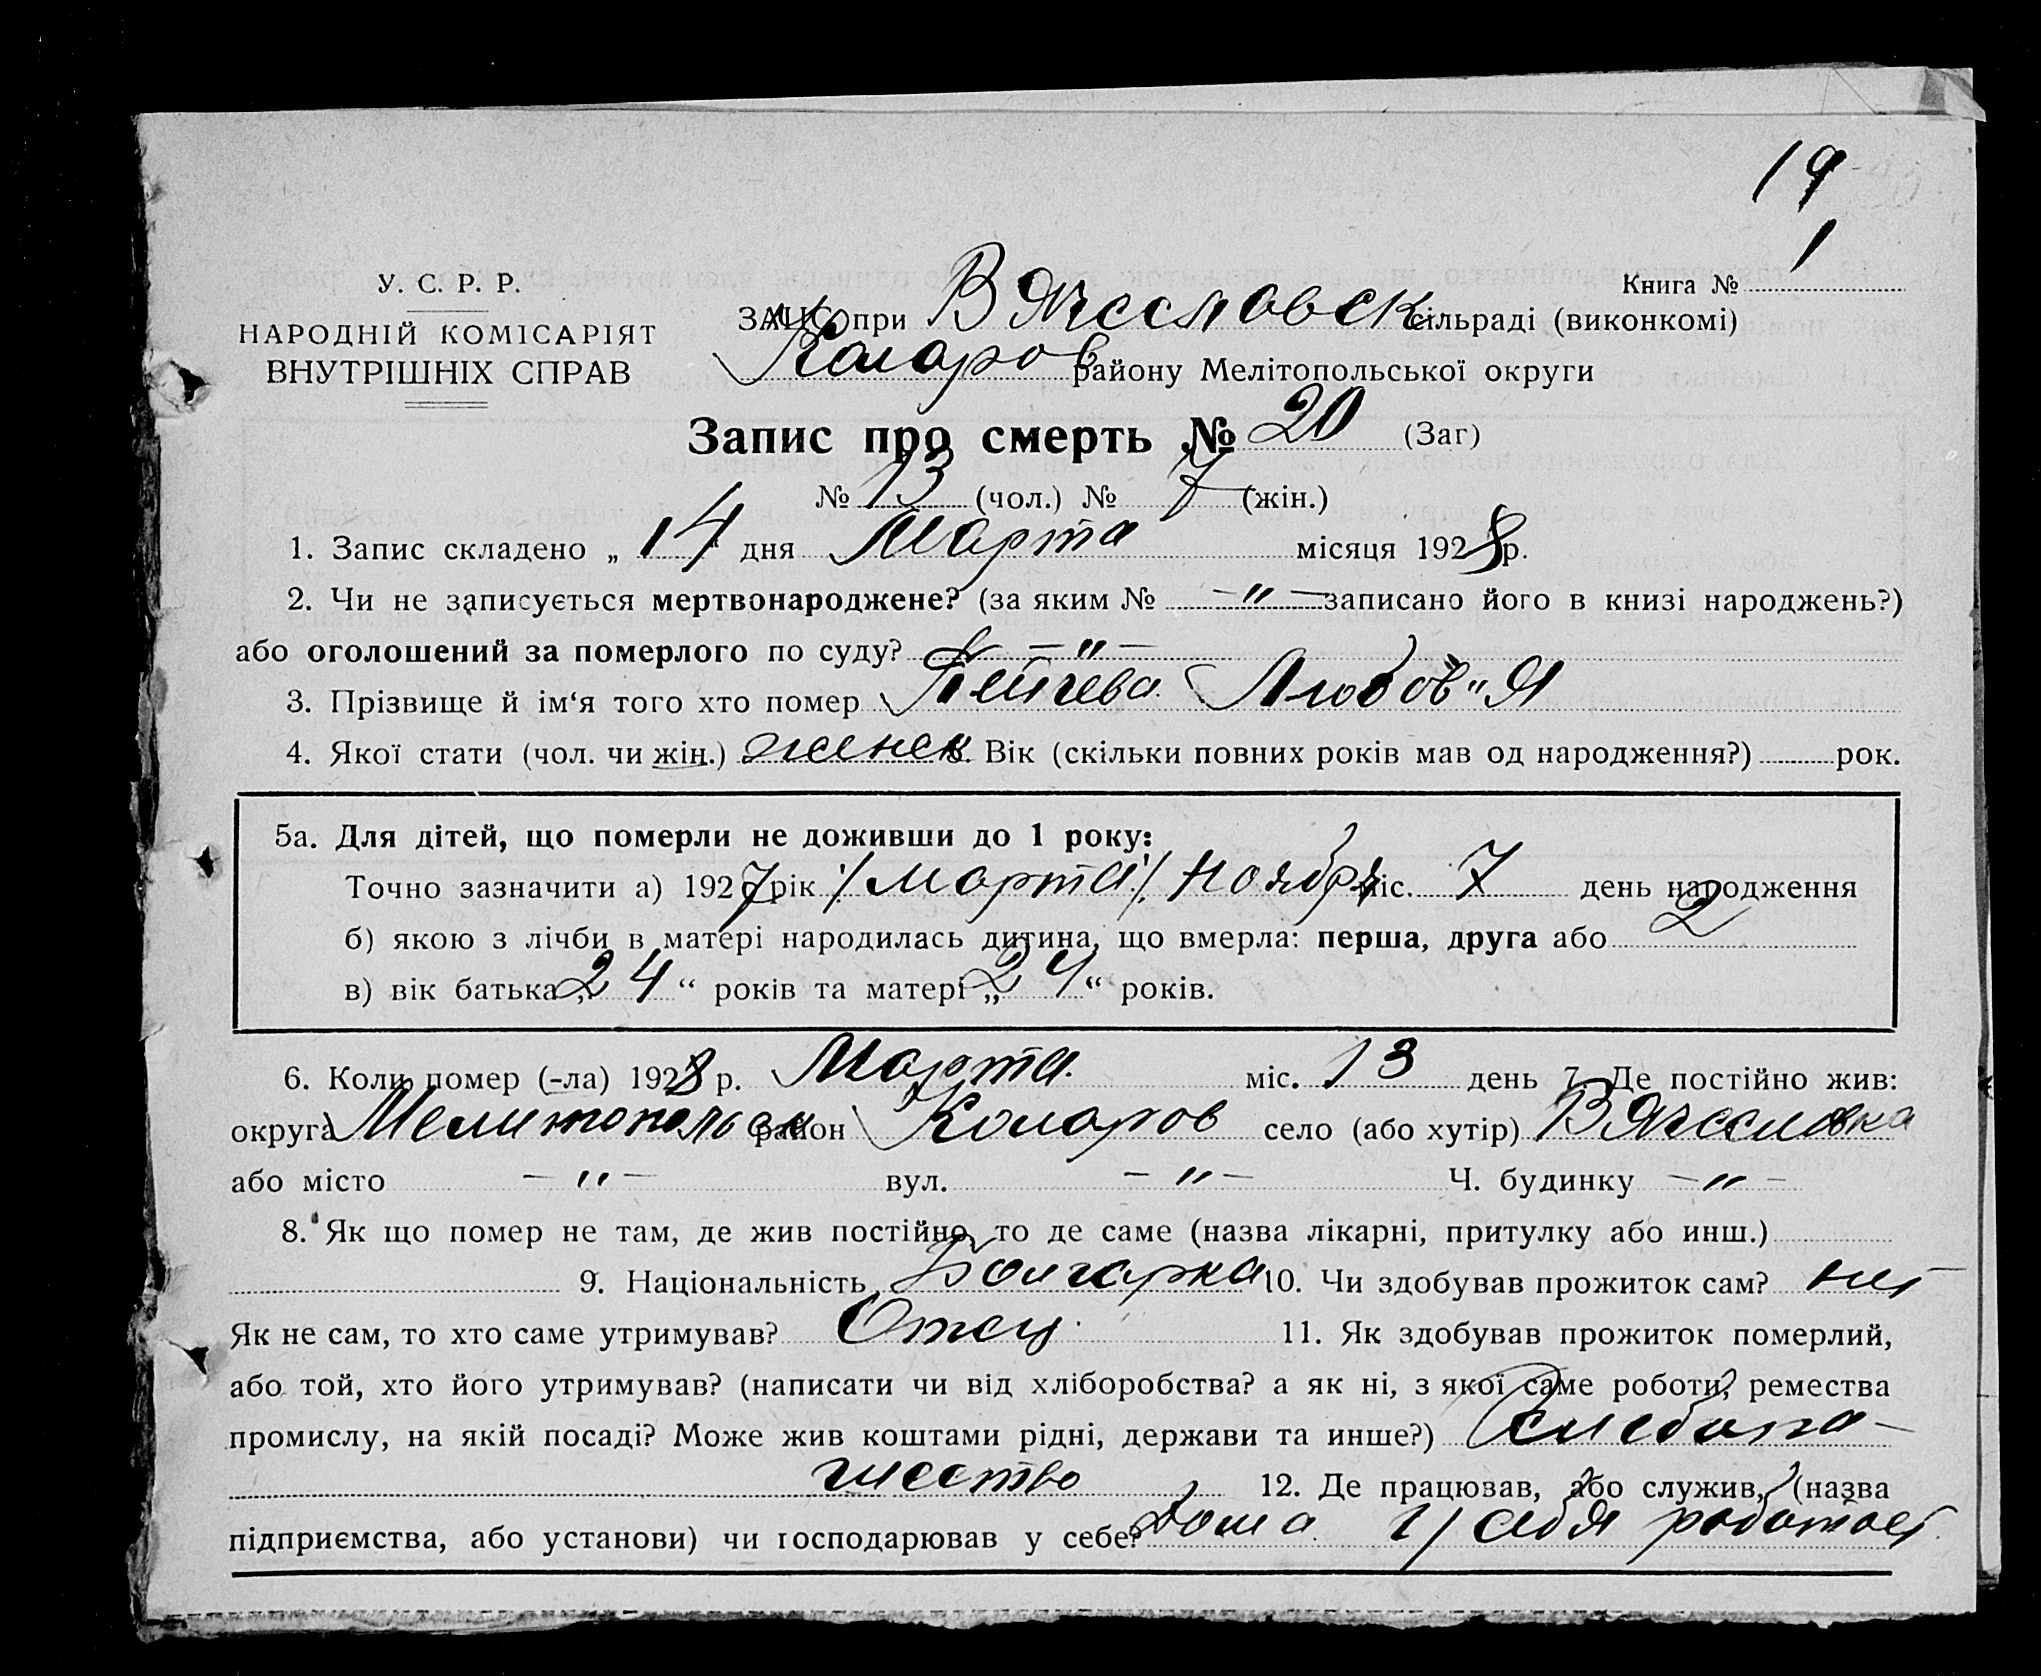 19
У. С. Р. Р.
НАРОДНІЙ КОМІСАРІЯТ
ВНУТРІШНІХ СПРАВ
Книга № 1
ЗАЦС при Вячесловск сільраді (виконкомі)
Коларов району Мелітопольської округи
Запис про смерть № 20 (Заг)
№ 13 (чол.) № 7 (жін.)
1. Запис складено „ 14 “ дня Марта місяця 1928 р.
2. Чи не записується мертвонароджене? (за яким № — „ — записано його в книзі народжень?)
або оголошений за померлого по суду? — „ —
3. Прізвище й ім‘я того хто помер Пейчева Любов"Я
4. Якої стати (чол. чи жін.) женск. Вік (скільки повних років мав од народження?) рок.
5а. Для дітей, що померли не доживши до 1 року:
Точно зазначити а) 1927 рік /Марта/ Ноября міс. 7 день народження
б) якою з лічби в матері народилась дитина, що вмерла: перша, друга або 2
в) вік батька „ 24 “ років та матері „ 24 “ років.
6. Коли помер (-ла) 1928 р. Марта міс. 13 день 7. Де постійно жив:
округа Мелитопольск район Коларов село (або хутір) Вячесловка
або місто — „ — вул. — „ — Ч. будинку — „ —
8. Як що помер не там, де жив постійно, то де саме (назва лікарні, притулку або инш.)
9. Національність Болгарка 10. Чи здобував прожиток сам? нет
Як не сам, то хто саме утримував? Отец 11. Як здобував прожиток померлий,
або той, хто його утримував? (написати чи від хліборобства? а як ні, з якої саме роботи, ремества
промислу, на якій посаді? Може жив коштами рідні, держави та инше?) Хлебопа-
шество 12. Де працював, або служив, (назва
підприємства, або установи) чи господарював у себе? Дома у себя работает